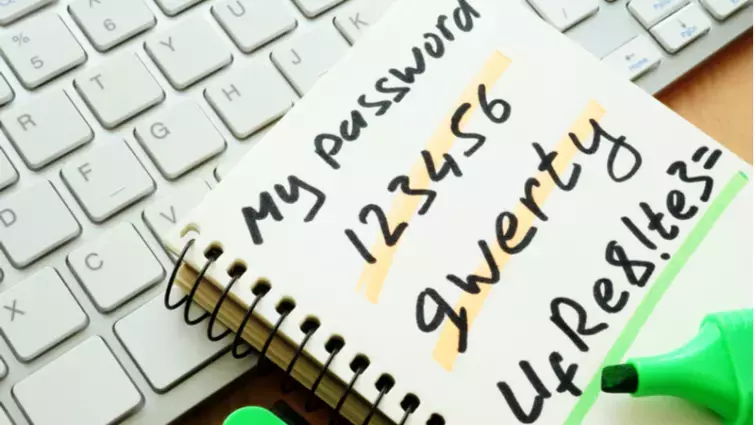 My password
123456
qwerty
UfRe8!te3=
% 5
^ 6
R T Y U
D F G H J
X C V